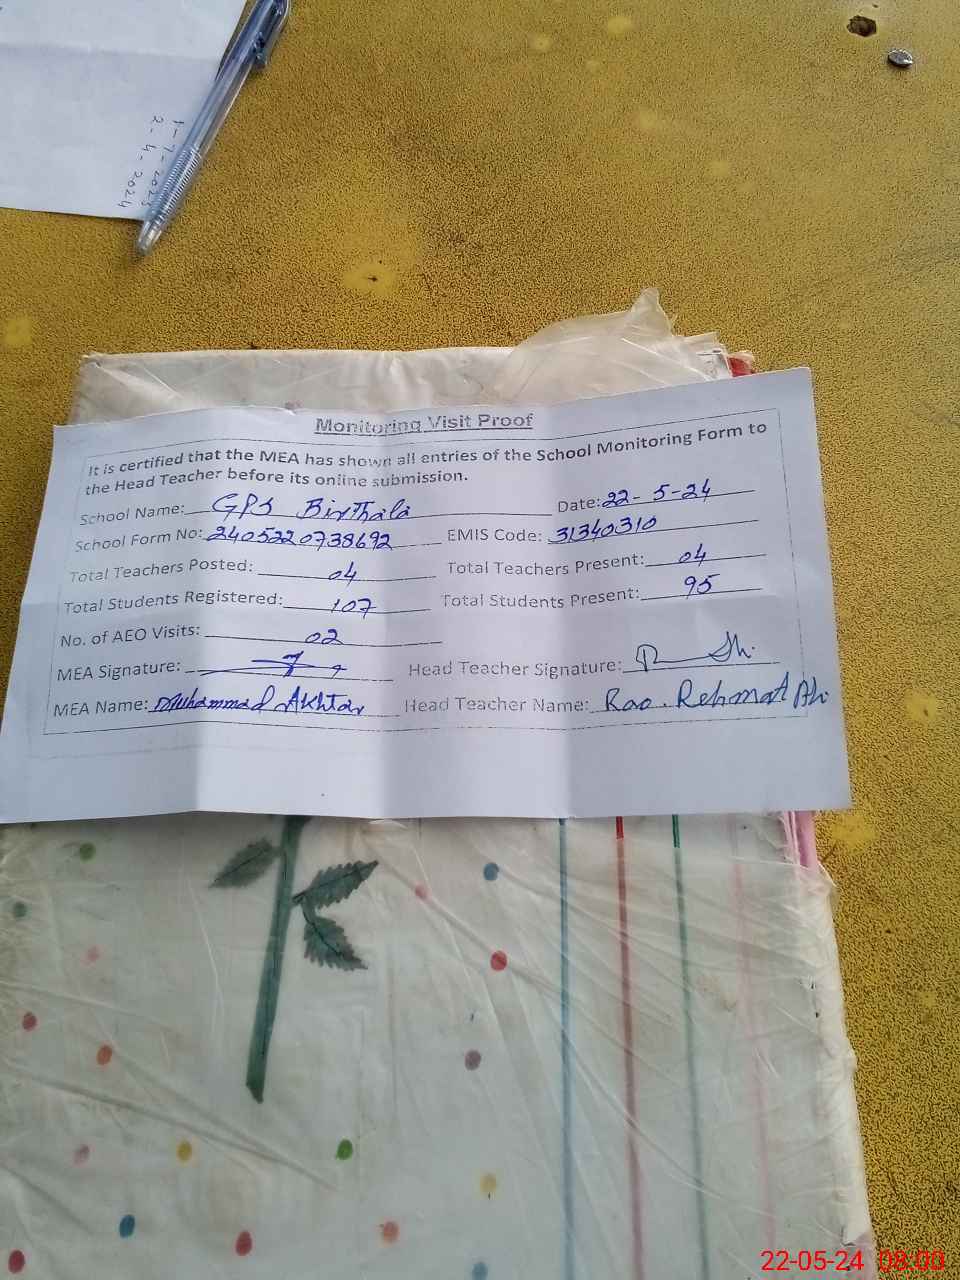 1-7-2023
2-4-2024
Monitoring Visit Proof
It is certified that the MEA has shown all entries of the School Monitoring Form to
the Head Teacher before its online submission.
School Name: GPS Birthala Date: 22-5-24
School Form No: 2405220738692 EMIS Code: 31340310
Total Teachers Posted: 04 Total Teachers Present: 04
Total Students Registered: 107 Total Students Present: 95
No. of AEO Visits: 02
MEA Signature: Head Teacher Signature:
MEA Name: Muhammad Akhtar Head Teacher Name: Rao. Rehmat Ali
22-05-24 08:00